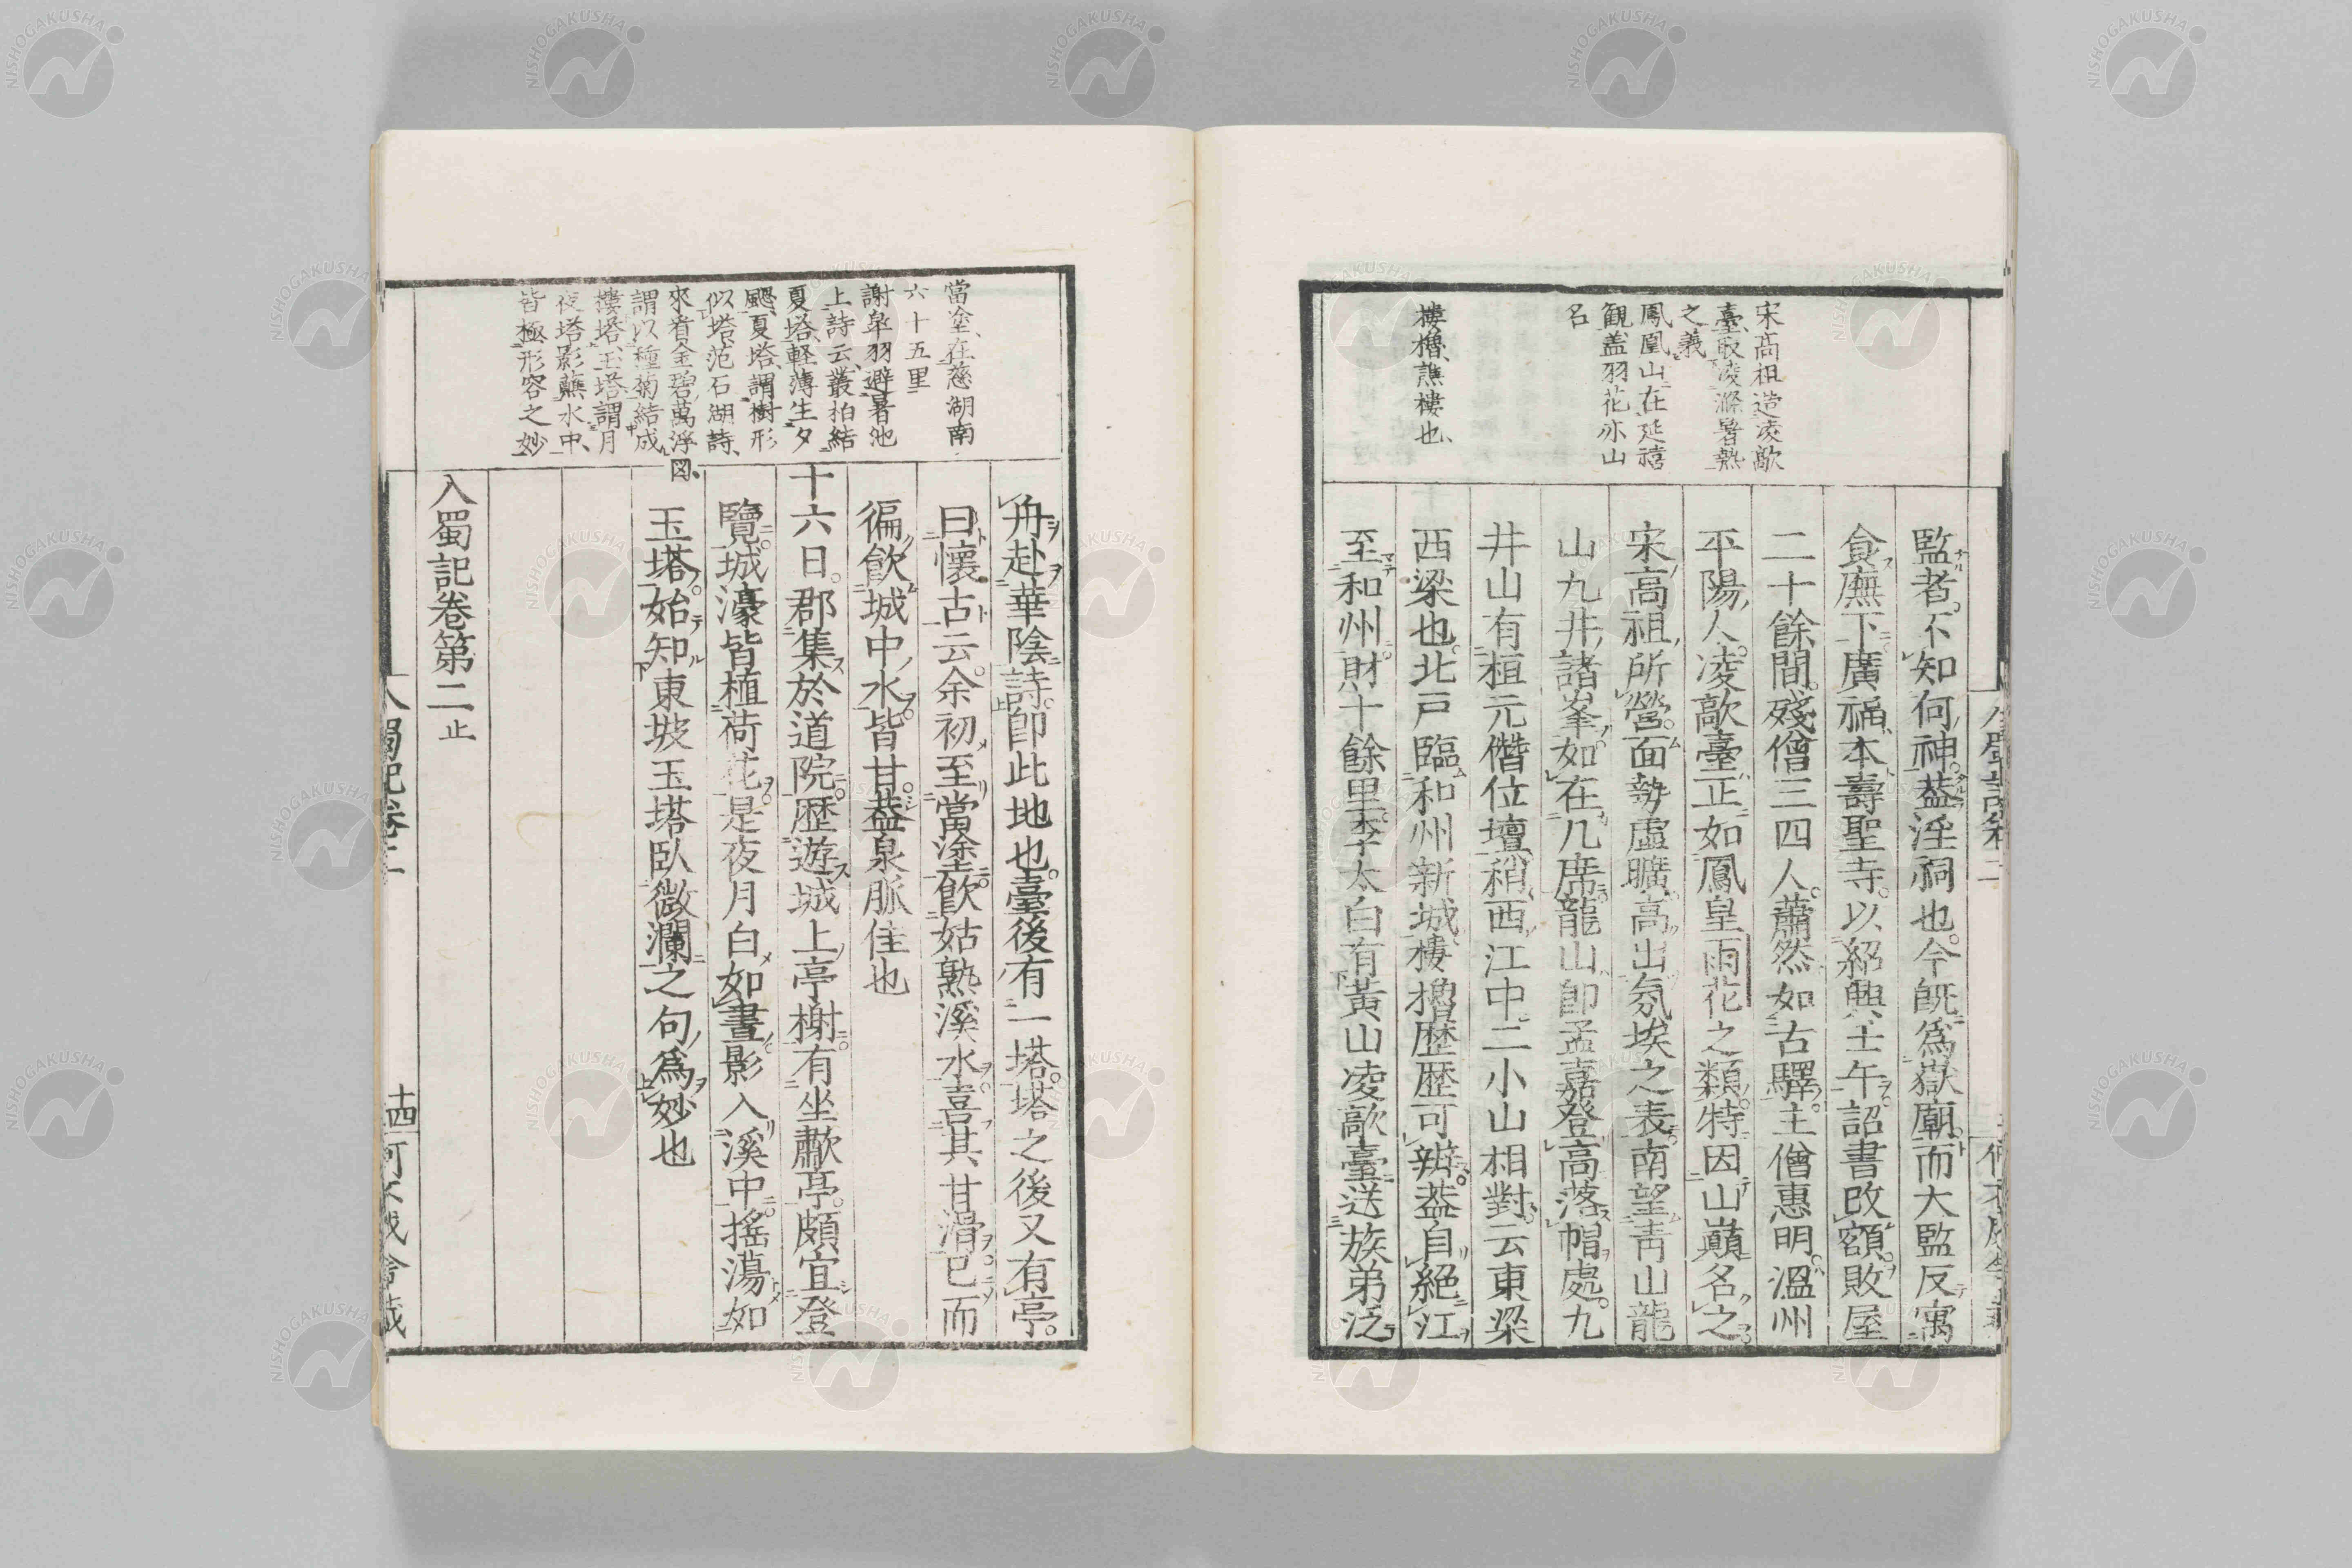 宋高祖造凌歊
臺取凌滌暑熱
之義
鳳凰山在延禧
観盖羽花亦山
名
樓櫓譙樓也
監者。不知何神。葢淫祠也。今既爲嶽廟。而大監反寓
食廡下。廣福、本壽聖寺。以紹興壬午詔書改額。敗屋
二十餘間。殘僧三四人。蕭然如古驛。主僧惠明。溫州
平陽人。凌歊臺正如鳳皇雨花之類。特因山巔名之。
宋高祖所營。面勢虛曠。高出氛埃之表。南望靑山龍
山九井諸峯。如在几席。龍山卽孟嘉登高落帽處。九
井山有桓元僭位壇。稍西江中二小山相對。云東梁
西梁也。北戸臨和州新城。樓櫓歴歴可辨。葢自絕江
至和州。財十餘里。李太白有黃山凌歊臺送族弟泛
當塗、在慈湖南
六十五里
謝皐羽避暑池
上詩云、叢拍結
夏塔、軽薄生夕
颸、夏塔、謂樹形
似塔、范石湖詩、
來看金碧萬浮図、
謂以種菊結成
樓塔、玉塔謂月
夜塔影蘸水中、
皆極形容之妙
舟赴華陰詩。卽此地也。臺後有一塔。塔之後又有亭。
曰懷古云。余初至當塗。飮姑熟溪水。喜其甘滑。已而
徧飮城中水。皆甘。葢泉脈佳也
十六日。郡集於道院。歴遊城上亭榭。有坐歗亭。頗宜登
覽。城濠皆植荷花。是夜月白如晝。影入溪中。搖蕩如
玉塔。始知東坡玉塔臥微瀾之句爲妙也
入蜀記卷第二 止
入蜀記卷二
十四